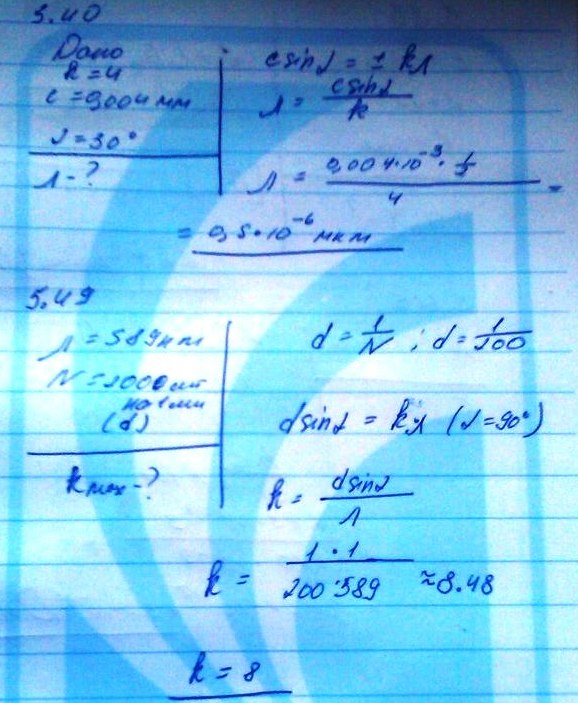 5.40
Дано
k = 4
c = 0,004 мм
α = 30°
λ - ?
c sin α = ± kλ
λ = c sin α / k
λ = 0,004·10⁻³ · 1/2 / 4 =
= 0,5·10⁻⁶ мкм
5.49
λ = 589 нм
N = 200 шт
на 1 мм
(d)
k max - ?
d = 1/N ; d = 1/200
d sin α = kλ (α = 90°)
k = d sin α / λ
k = 1 · 1 / 200·589 ≈ 8.48
k = 8